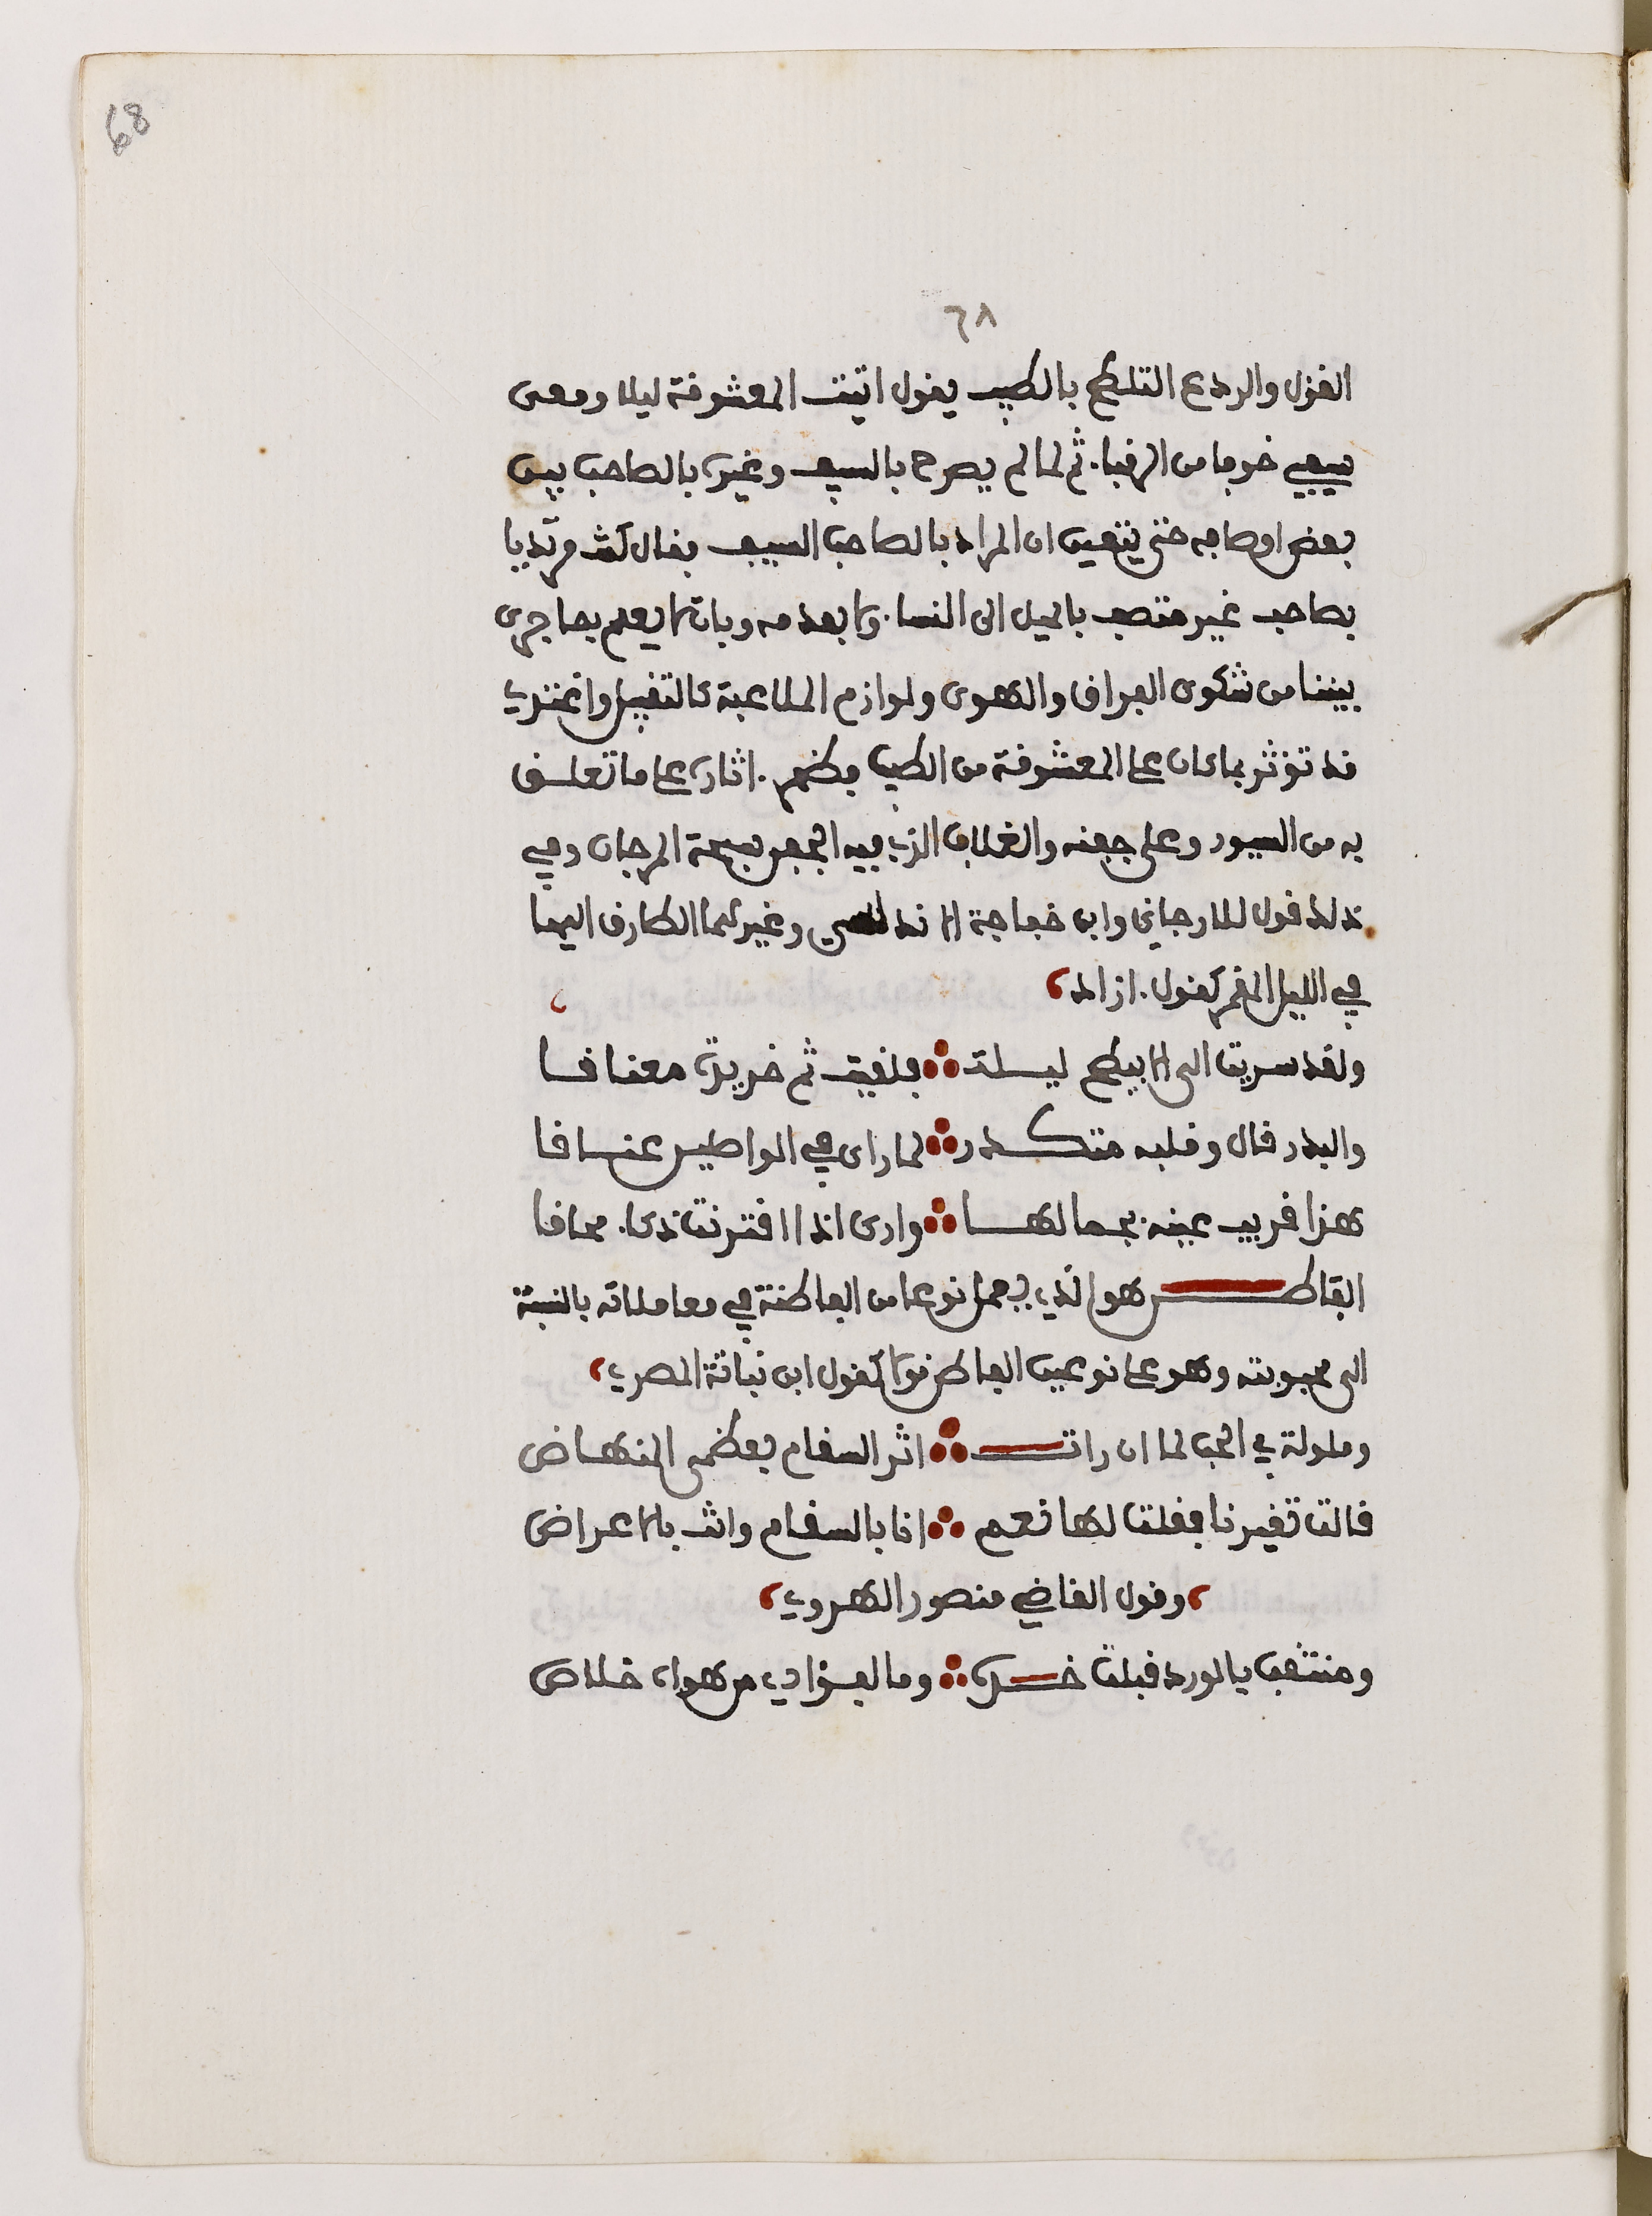 68
٦٨
الغزل والردع التلطخ بالطيب يقول اتيت المعشوقة ليلا ومعى
سيفي خوفا من الرقبا. ثم لما لم يصرح بالسيف وغيره بالصاحب بين
بعض اوصافه حتى يتعين ان المراد بالصاحب السيف فقال كنت مرتديا
بصاحب غير متصف بالميل الى النسا. ولا بعدمه وبانه لا يعلم بما جرى
بيننا من شكوى الفراق والهوى ولوازم الملاعبة كالتقبيل وانحمدي
قد تؤثر بما كان على المعشوقة من الطيب فظهر. اثاره على ما تعلق
به من السيور وعلى جفنه والغلاف الذي فيه الجفن سبحة المرجان وفي
ذلك قول للارجاني وابن خفاجة الاندلسي وغيرهما الطارق اليها
في الليل المقمر كقول. ازاد
ولقد سريت الى الابيطح ليلة فلقيت ثم خريدة معناقا
والبدر قال وقلبه متكدر لما راى في الواطيس عناقا
هذا قريب عينه بجمالها وارى اذا اقترنت ذكا. محاقا
الفاطن هو الذي يعمل نوعا من الفاطنة في معاملاته بالنسبة
الى محبوبته وهو على نوعين الفاطن قولا كقول ابن نباتة المصري
وملولة في الحب لما ان رات اثر السقام بعظمى المنهاض
قالت تغيرنا فقلت لها نعم انا بالسقام وانت بالاعراض
وقول القاضي منصور الهروي
ومنتقب بالورد قبلت خده وما لفؤادي من هواه خلاص